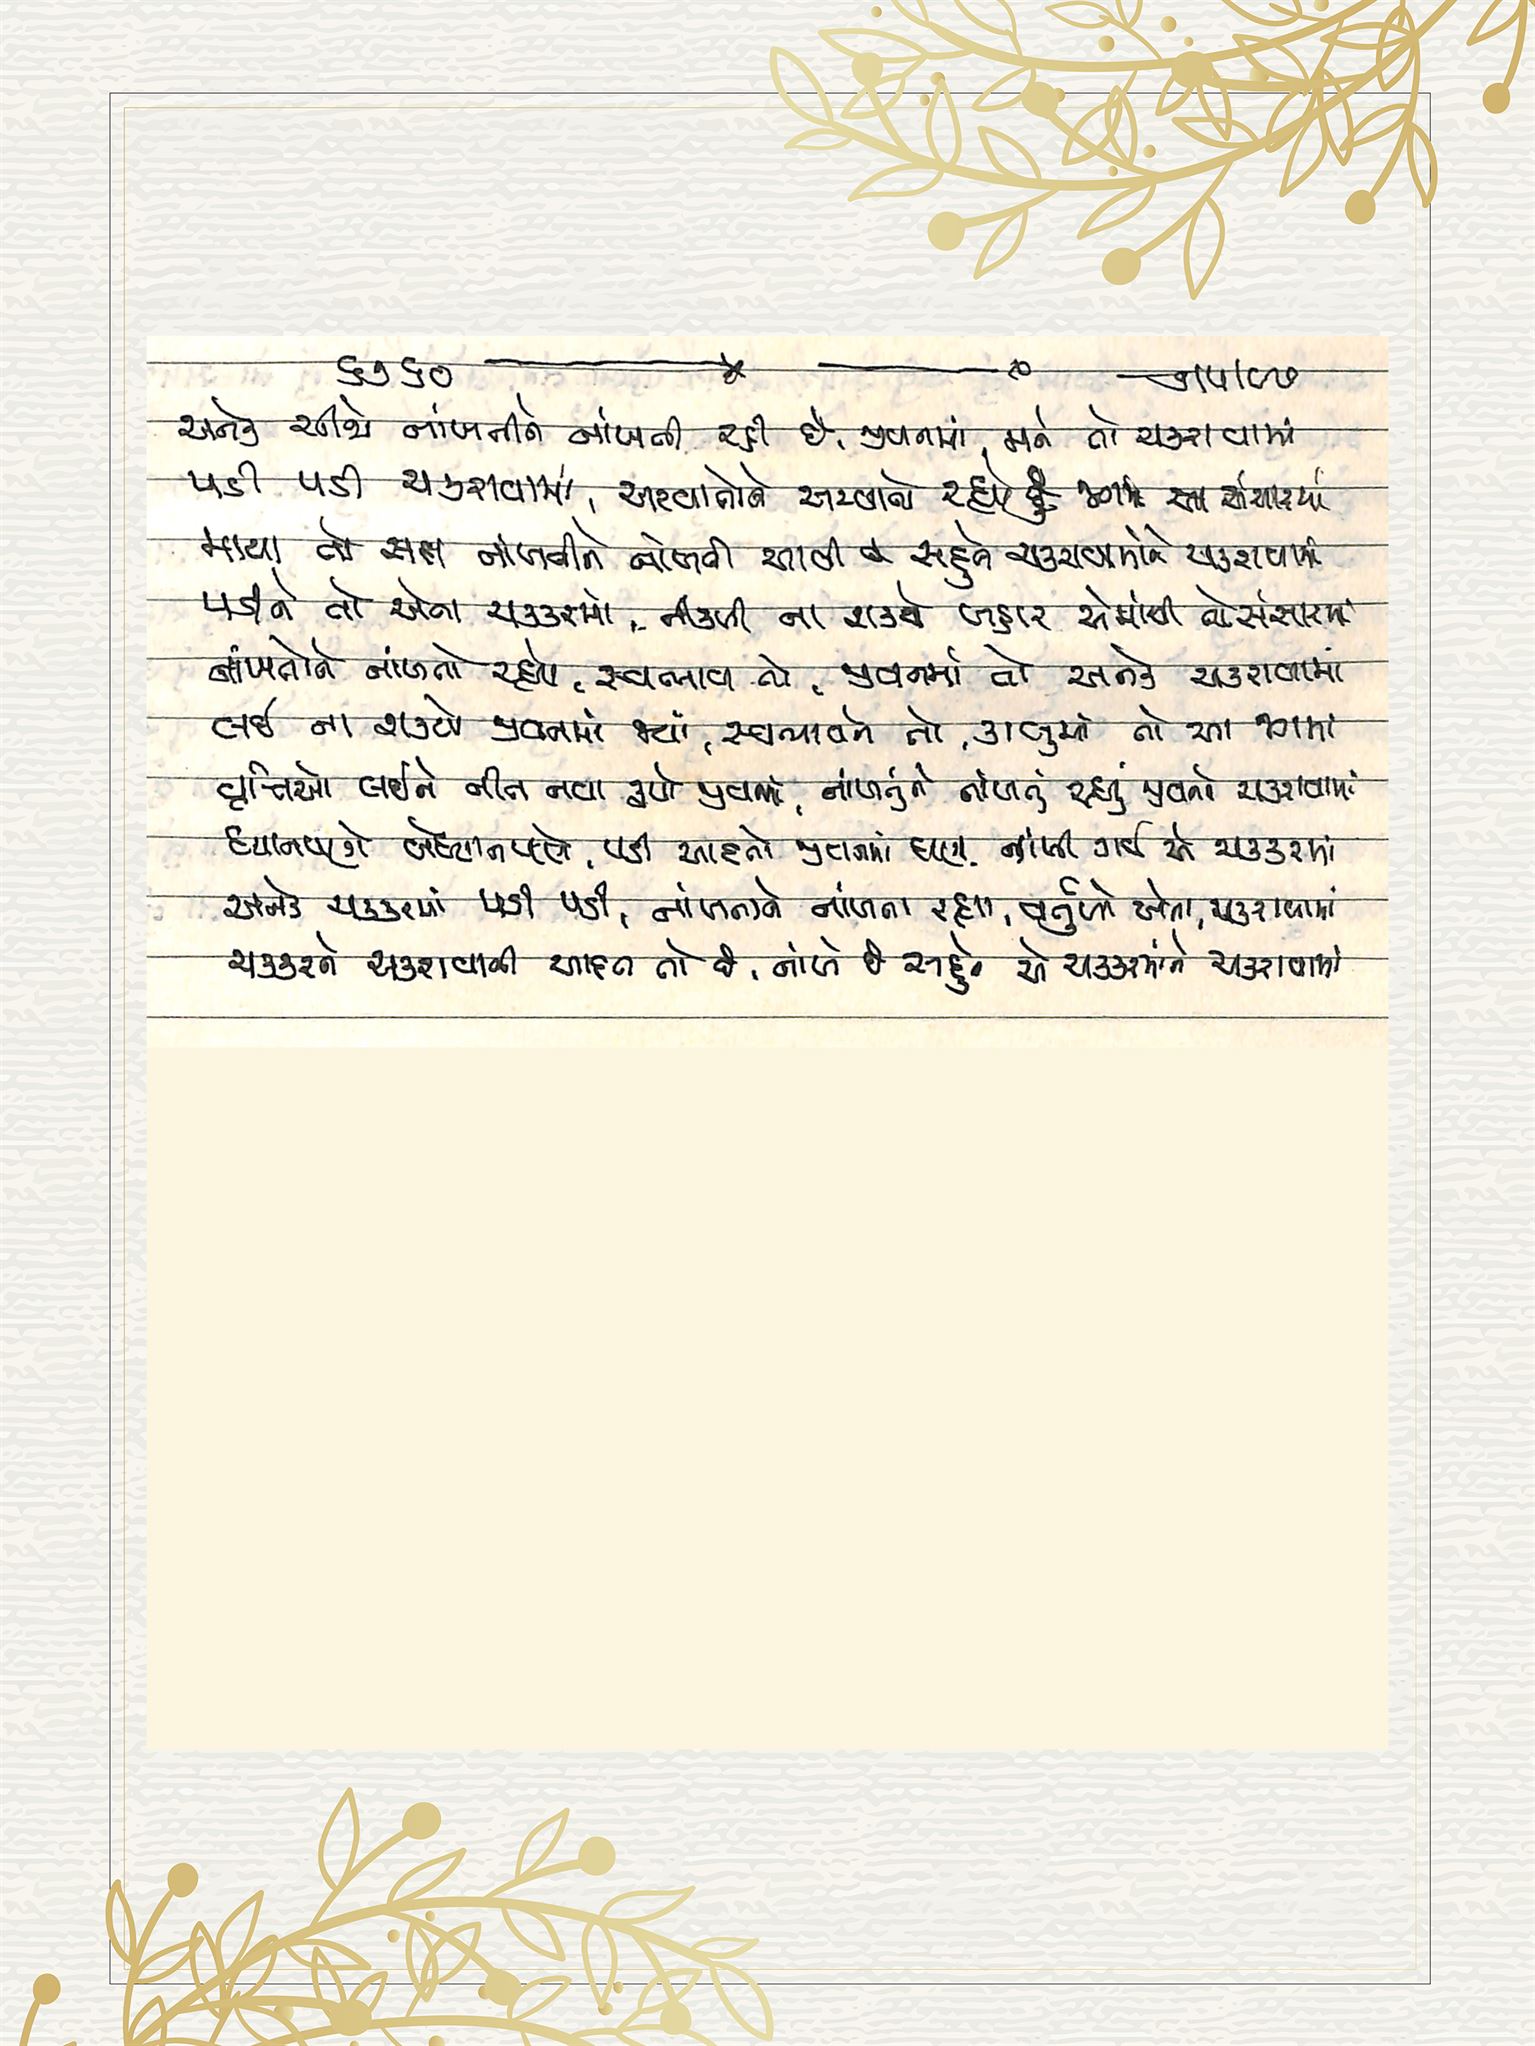 ૬૭૬૦
અનેક રીતે નાંખતીને નાંખતી રહી છે, જીવનમાં, મને તો ચકરાવામાં
પડી પડી ચકરાવામાં, અટવાતોને અટવાતો રહ્યો છું જગમાં આ સંસારમાં
માયા તો સદા નાંખતીને નાંખતી આવી છે સહુને ચકરાવામાંને ચકરાવામાં
પડીને તો એના ચક્કરમાં, નીકળી ના શકયો બહાર એમાંથી તો સંસારમાં
નાંખતોને નાંખતો રહ્યો, સ્વભાવ તો, જીવનમાં તો અનેક ચકરાવામાં
લઈ ના શકયો જીવનમાં જ્યાં, સ્વભાવને તો, કાબુમાં તો આ જગમાં
વૃત્તિઓ લઈને નીત નવા રૂપો જીવનમાં, નાંખતુંને નાંખતું રહ્યું જીવનને ચકરાવામાં
ધ્યાનપણે બેધ્યાનપણે, પડી આદતો જીવનમાં ઘણી, નાંખી ગઈ એ ચક્કરમાં
અનેક ચક્કરમાં પડી પડી, નાંખતાને નાંખતા રહ્યા, વર્તુળો એના, ચકરાવામાં
ચક્કરને ચકરાવાની આદત તો છે, નાંખે છે સહુને એ ચક્કરમાંને ચકરાવામાં